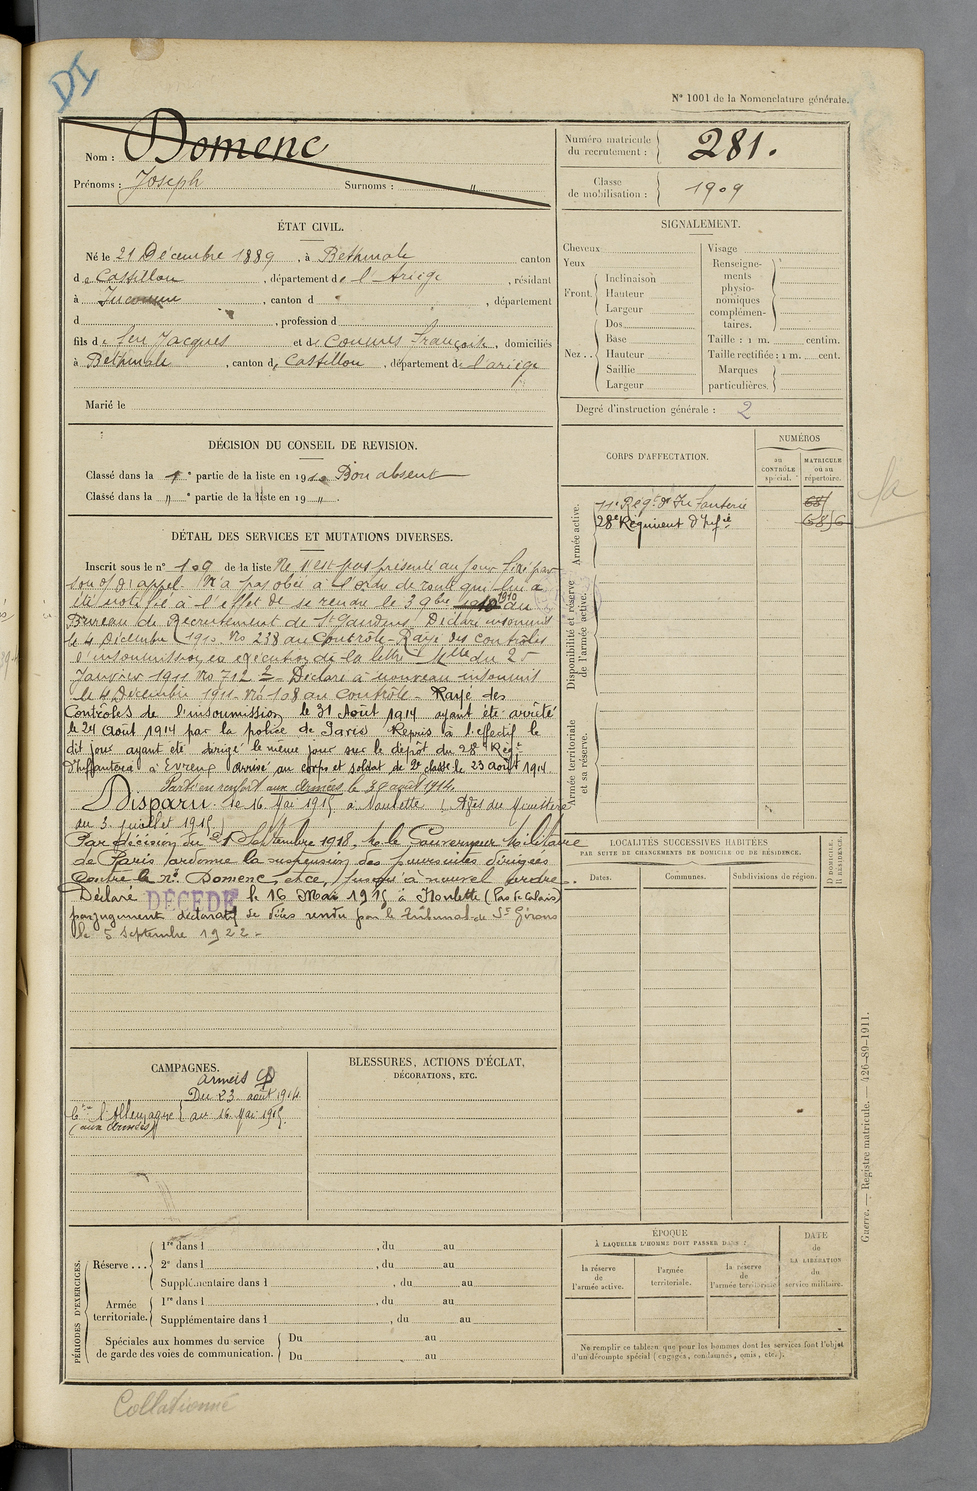 DI
N° 1001 de la Nomenclature générale.
Nom : Domenc
Prénoms : Joseph Surnoms : "
Numéro matricule du recrutement : 281.
Classe de mobilisation : 1909
ÉTAT CIVIL.
Né le 21 Décembre 1889, à Bethmale canton
de Castillon, département de l'Ariège, résidant
à Inconnu, canton d , département
d , profession d
fils de feu Jacques et de Coumes Françoise, domiciliés
à Bethmale, canton de Castillon, département de l'ariège
Marié le
SIGNALEMENT.
Cheveux
Yeux
Front. Inclinaison
Hauteur
Largeur
Nez .. Dos
Base
Hauteur
Saillie
Largeur
Visage
Renseignements physionomiques complémentaires.
Taille : 1 m. centim.
Taille rectifiée : 1 m. cent.
Marques particulières.
Degré d'instruction générale : 2
DÉCISION DU CONSEIL DE REVISION.
Classé dans la 1e partie de la liste en 1910 Bon absent
Classé dans la " e partie de la liste en 19 " .
CORPS D'AFFECTATION.
NUMÉROS
au CONTRÔLE spécial.
MATRICULE ou au répertoire.
Armée active.
11e Régt d'Infanterie 68
28e Régiment d'Infie 6816
Disponibilité et réserve de l'armée active.
Armée territoriale et sa réserve.
DÉTAIL DES SERVICES ET MUTATIONS DIVERSES.
Inscrit sous le n° 109 de la liste Ne s'est pas présenté au jour fixé par
son o/ d'appel. N'a pas obéi à l'ordre de route qui lui a
été notifié à l'effet de se rendre le 3 9bre 1910 au
Bureau de Recrutement de St Gaudens Déclaré insoumis
le 4 Décembre 1910 No 238 au Contrôle - Rayé des contrôles
de l'insoumission en exécution de la lettre Mlle du 25
Janvier 1911 No 712 - Déclaré à nouveau insoumis
le 4 Décembre 1911 No 108 au contrôle - Rayé des
Contrôles de l'insoumission le 31 Août 1914 ayant été arrêté
le 24 Août 1914 par la police de Paris Repris à l'effectif le
dit jour ayant été dirigé le même jour sur le dépôt du 28e Régt
d'Infanterie à Evreux arrivé au corps et soldat de 2e classe le 23 août 1914
Parti en renfort aux armées le 30 août 1914.
Disparu le 16 Mai 1915 à Noulette (Avis du Ministère
du 3 juillet 1915)
Par décision du 1er Septembre 1918, M. le Gouverneur Militaire
de Paris ordonne la suspension des poursuites dirigées
contre le né Domenc, et ce, jusqu'à nouvel ordre.
Déclaré DÉCÉDÉ le 16 Mai 1915 à Noulette (Pas de Calais)
par jugement déclaratif de décès rendu par le tribunal de St Girons
le 5 Septembre 1922 -
LOCALITÉS SUCCESSIVES HABITÉES
PAR SUITE DE CHANGEMENTS DE DOMICILE OU DE RÉSIDENCE.
Dates.
Communes.
Subdivisions de région.
D DOMICILE.
R RÉSIDENCE.
CAMPAGNES.
armées
Du 23 août 1914
Cne l'Allemagne au 16 Mai 1915.
(aux armées)
BLESSURES, ACTIONS D'ÉCLAT,
DÉCORATIONS, ETC.
PÉRIODES D'EXERCICES.
Réserve ...
1re dans l , du au
2e dans l , du au
Supplémentaire dans l , du au
Armée territoriale.
1re dans l , du au
Supplémentaire dans l , du au
Spéciales aux hommes du service de garde des voies de communication.
Du au
Du au
ÉPOQUE
À LAQUELLE L'HOMME DOIT PASSER DANS :
la réserve de l'armée active.
l'armée territoriale.
la réserve de l'armée territoriale
DATE de LA LIBÉRATION du service militaire.
Ne remplir ce tableau que pour les hommes dont les services font l'objet
d'un décompte spécial (engagés, condamnés, omis, etc.).
Guerre. — Registre matricule. — 426-89-1911.
Collationné